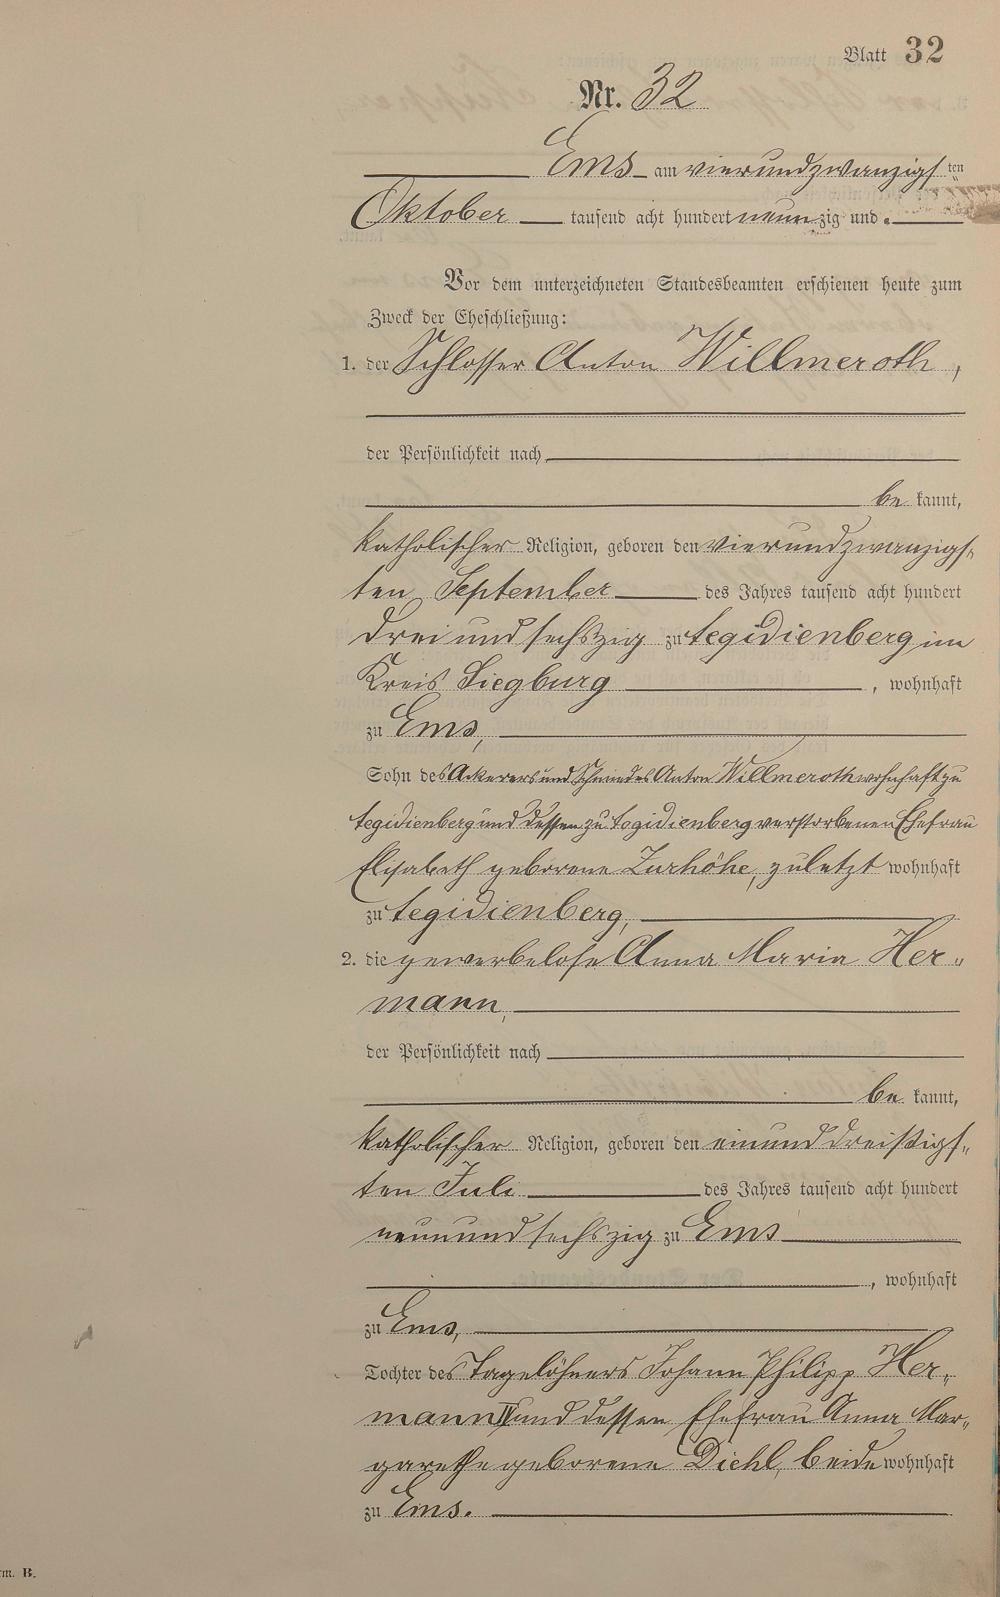 Blatt 32
Nr. 32
Ems am vierundzwanzigsten
Oktober tausend acht hundert neunzig und
Vor dem unterzeichneten Standesbeamten erschienen heute zum
Zweck der Eheschließung:
1. der Schlosser Anton Willmeroth,
der Persönlichkeit nach
be kannt,
katholischer Religion, geboren den vierundzwanzigs-
ten September des Jahres tausend acht hundert
drei und sechszig zu Aegidienberg im
Kreis Siegburg, wohnhaft
zu Ems,
Sohn des Ackerers und Schmiedes Anton Willmeroth wohnhaft zu
Aegidienberg und dessen zu Aegidienberg verstorbenen Ehefrau
Elisabeth geborene Zurhöhe, zuletzt wohnhaft
zu Aegidienberg,
2. die gewerbelose Anna Maria Her-
mann,
der Persönlichkeit nach
be kannt,
katholischer Religion, geboren den einunddreißigs-
ten Juli des Jahres tausend acht hundert
neunundsechszig zu Ems
, wohnhaft
zu Ems,
Tochter des Tagelöhners Johann Philipp Her-
mann IV und dessen Ehefrau Anna Mar-
garethe geborene Diehl, beide wohnhaft
zu Ems.
rm. B.